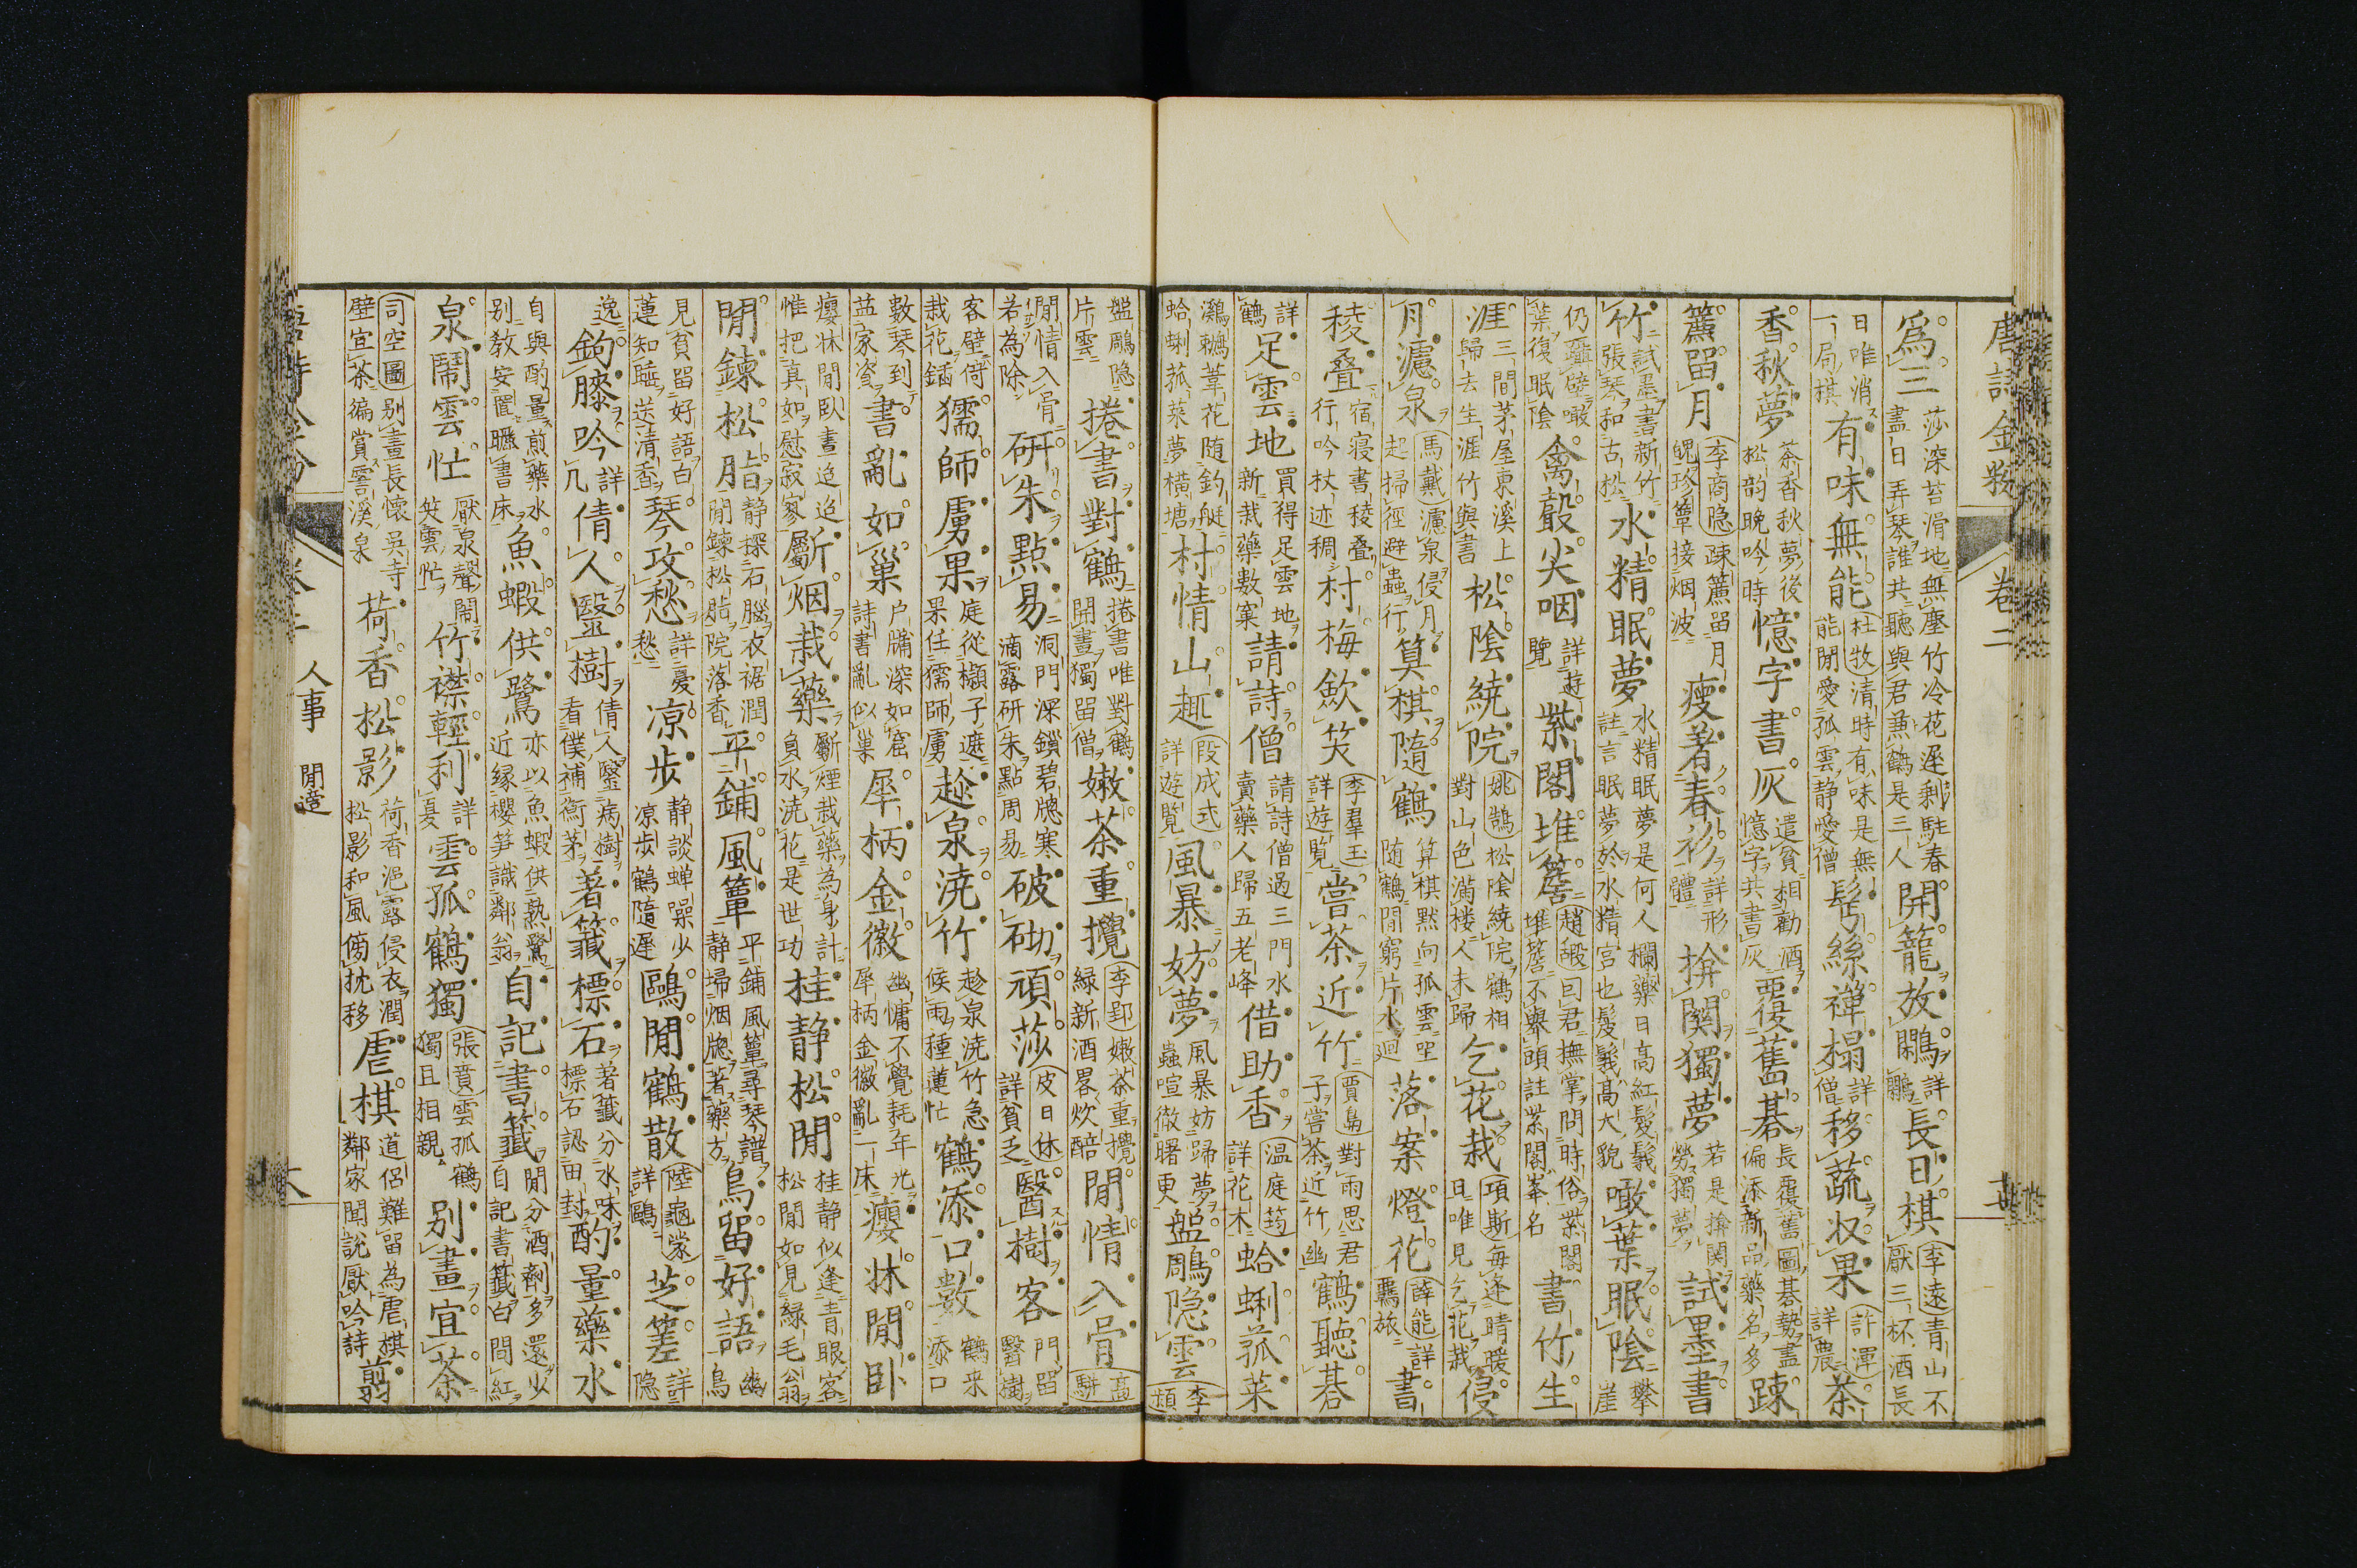 唐詩金粉 卷二
為三 莎深苔滑地無塵竹冷花遲剩駐春 盡日弄琴誰共聽與君兼鶴是三人 開籠放鷳 詳鷳 長日棋 李遠青山不厭三杯酒長
日唯消一局棋 有味無能 杜牧清時有味是無能閒愛孤雲静愛僧 髩絲禅榻 詳僧 移蔬收果 許渾詳農 茶
香秋夢 茶香秋夢後松韵晚吟時 憶字書灰 遣貧相勸酒憶字共書灰 覆舊棊 長覆舊圖棊勢盡偏添新品藥名多 踈
簾留月 李商隐踈簾留月魄珍簟接烟波 瘦著春衫 詳形體 揜関獨夢 若是揜関勞獨夢 試墨書
竹 試墨書新竹張琴和古松 水精眠夢 水精眠夢是何人欄藥日高紅髲鬖註言眠夢於水精宮也髲鬖髙大貌 噉葉眠陰 攀崖
仍躡壁噉葉復眠陰 禽聲尖咽 詳遊覽 紫閣堆簷 趙嘏回君撫掌問時俗紫閣堆簷不舉頭註紫閣峯名 書竹生
涯 三間茅屋東溪上歸去生涯竹與書 松陰繞院 姚鵠松陰繞院鶴相對山色滿楼人未歸 乞花栽 項斯每逢晴暖日唯見乞花栽 侵
月濾泉 馬戴濾泉侵月起掃徑避蟲行 算棋隨鶴 算棋默向孤雲坐随鶴閒窮片水迴 落案燈花 薛能詳羈旅 書
稜叠 宿寝書稜叠行吟杖迹稠 村梅歛笑 李羣玉詳遊覧 嘗茶近竹 賈島對雨思君子嘗茶近竹幽 鶴聽棊
詳鶴 足雲地 買得足雲地新栽藥數窠 請詩僧 請詩僧過三門水賣藥人歸五老峰 借助香 温庭筠詳花木 蛤蜊菰菜
㶉鶒葦花随釣艇蛤蜊菰菜夢横塘 村情山趣 段成式詳遊覽 風暴妨夢 風暴妨歸夢蟲喧徹曙更 盤鵰隐雲 李頻
盤鵰隐片雲 捲書對鶴 捲書唯對鶴開畫獨留僧 嫩茶重攪 李郢嫩茶重攪緑新酒畧炊醅 閒情入骨 高駢
閒情入骨若為除 研朱點易 洞門深鎖碧牕寒滴露研朱點周易 破砌頑莎 皮日休詳貧乏 醫樹客 門留醫樹
客壁倚栽花鍤 獳師虜果 庭從欗子遮果任獳師虜 趁泉澆竹 趁泉澆竹急候雨種蓮忙 鶴添口數 鶴来添口
數琴到益家資 書亂如巢 户牖深如窟詩書亂似巢 犀柄金徽 幽慵不覺耗年光犀柄金徽亂一床 癭牀閒卧
癭牀閒臥晝迢迢惟把真如慰寂寥 斸烟栽藥 斸煙栽藥為身計負水澆花是世功 桂静松閒 桂静似逢青眼客松閒如見緑毛翁
閒鍊松脂 静探石腦衣裾潤閒鍊松脂院落香 平鋪風簟 平鋪風簟尋琴譜静掃烟牕著藥方 鳥留好語 幽鳥
見貧留好語白蓮知睡送清香 琴攻愁 詳憂愁 凉步 静談蝉噪少凉步鶴隨遲 鷗閒鶴散 陸龜蒙詳鷗 芝䒳 詳隐
逸 鉤膝吟 詳几 倩人醫樹 倩人醫病樹看僕補衡茅 著籤標石 著籤分水味標石認田封 酌量藥水
自與酌量煎藥水别教安置曬書床 魚蝦供鷺 亦以魚蝦供熟鷺近緣櫻笋識鄰翁 自記書籤 閒分酒劑多還少自記書籤白間紅
泉鬧雲忙 厭泉聲鬧笑雲忙 竹襟輕利 詳夏 雲孤鶴獨 張賁雲孤鶴獨且相親 别畫宜茶
司空圖别畫長懷吳寺壁宜茶徧賞霅溪泉 荷香松影 荷香浥露侵衣潤松影和風傍枕移 虐棋 道侶難留為虐棋鄰家閒說厭吟詩 翦
人事 閒遊